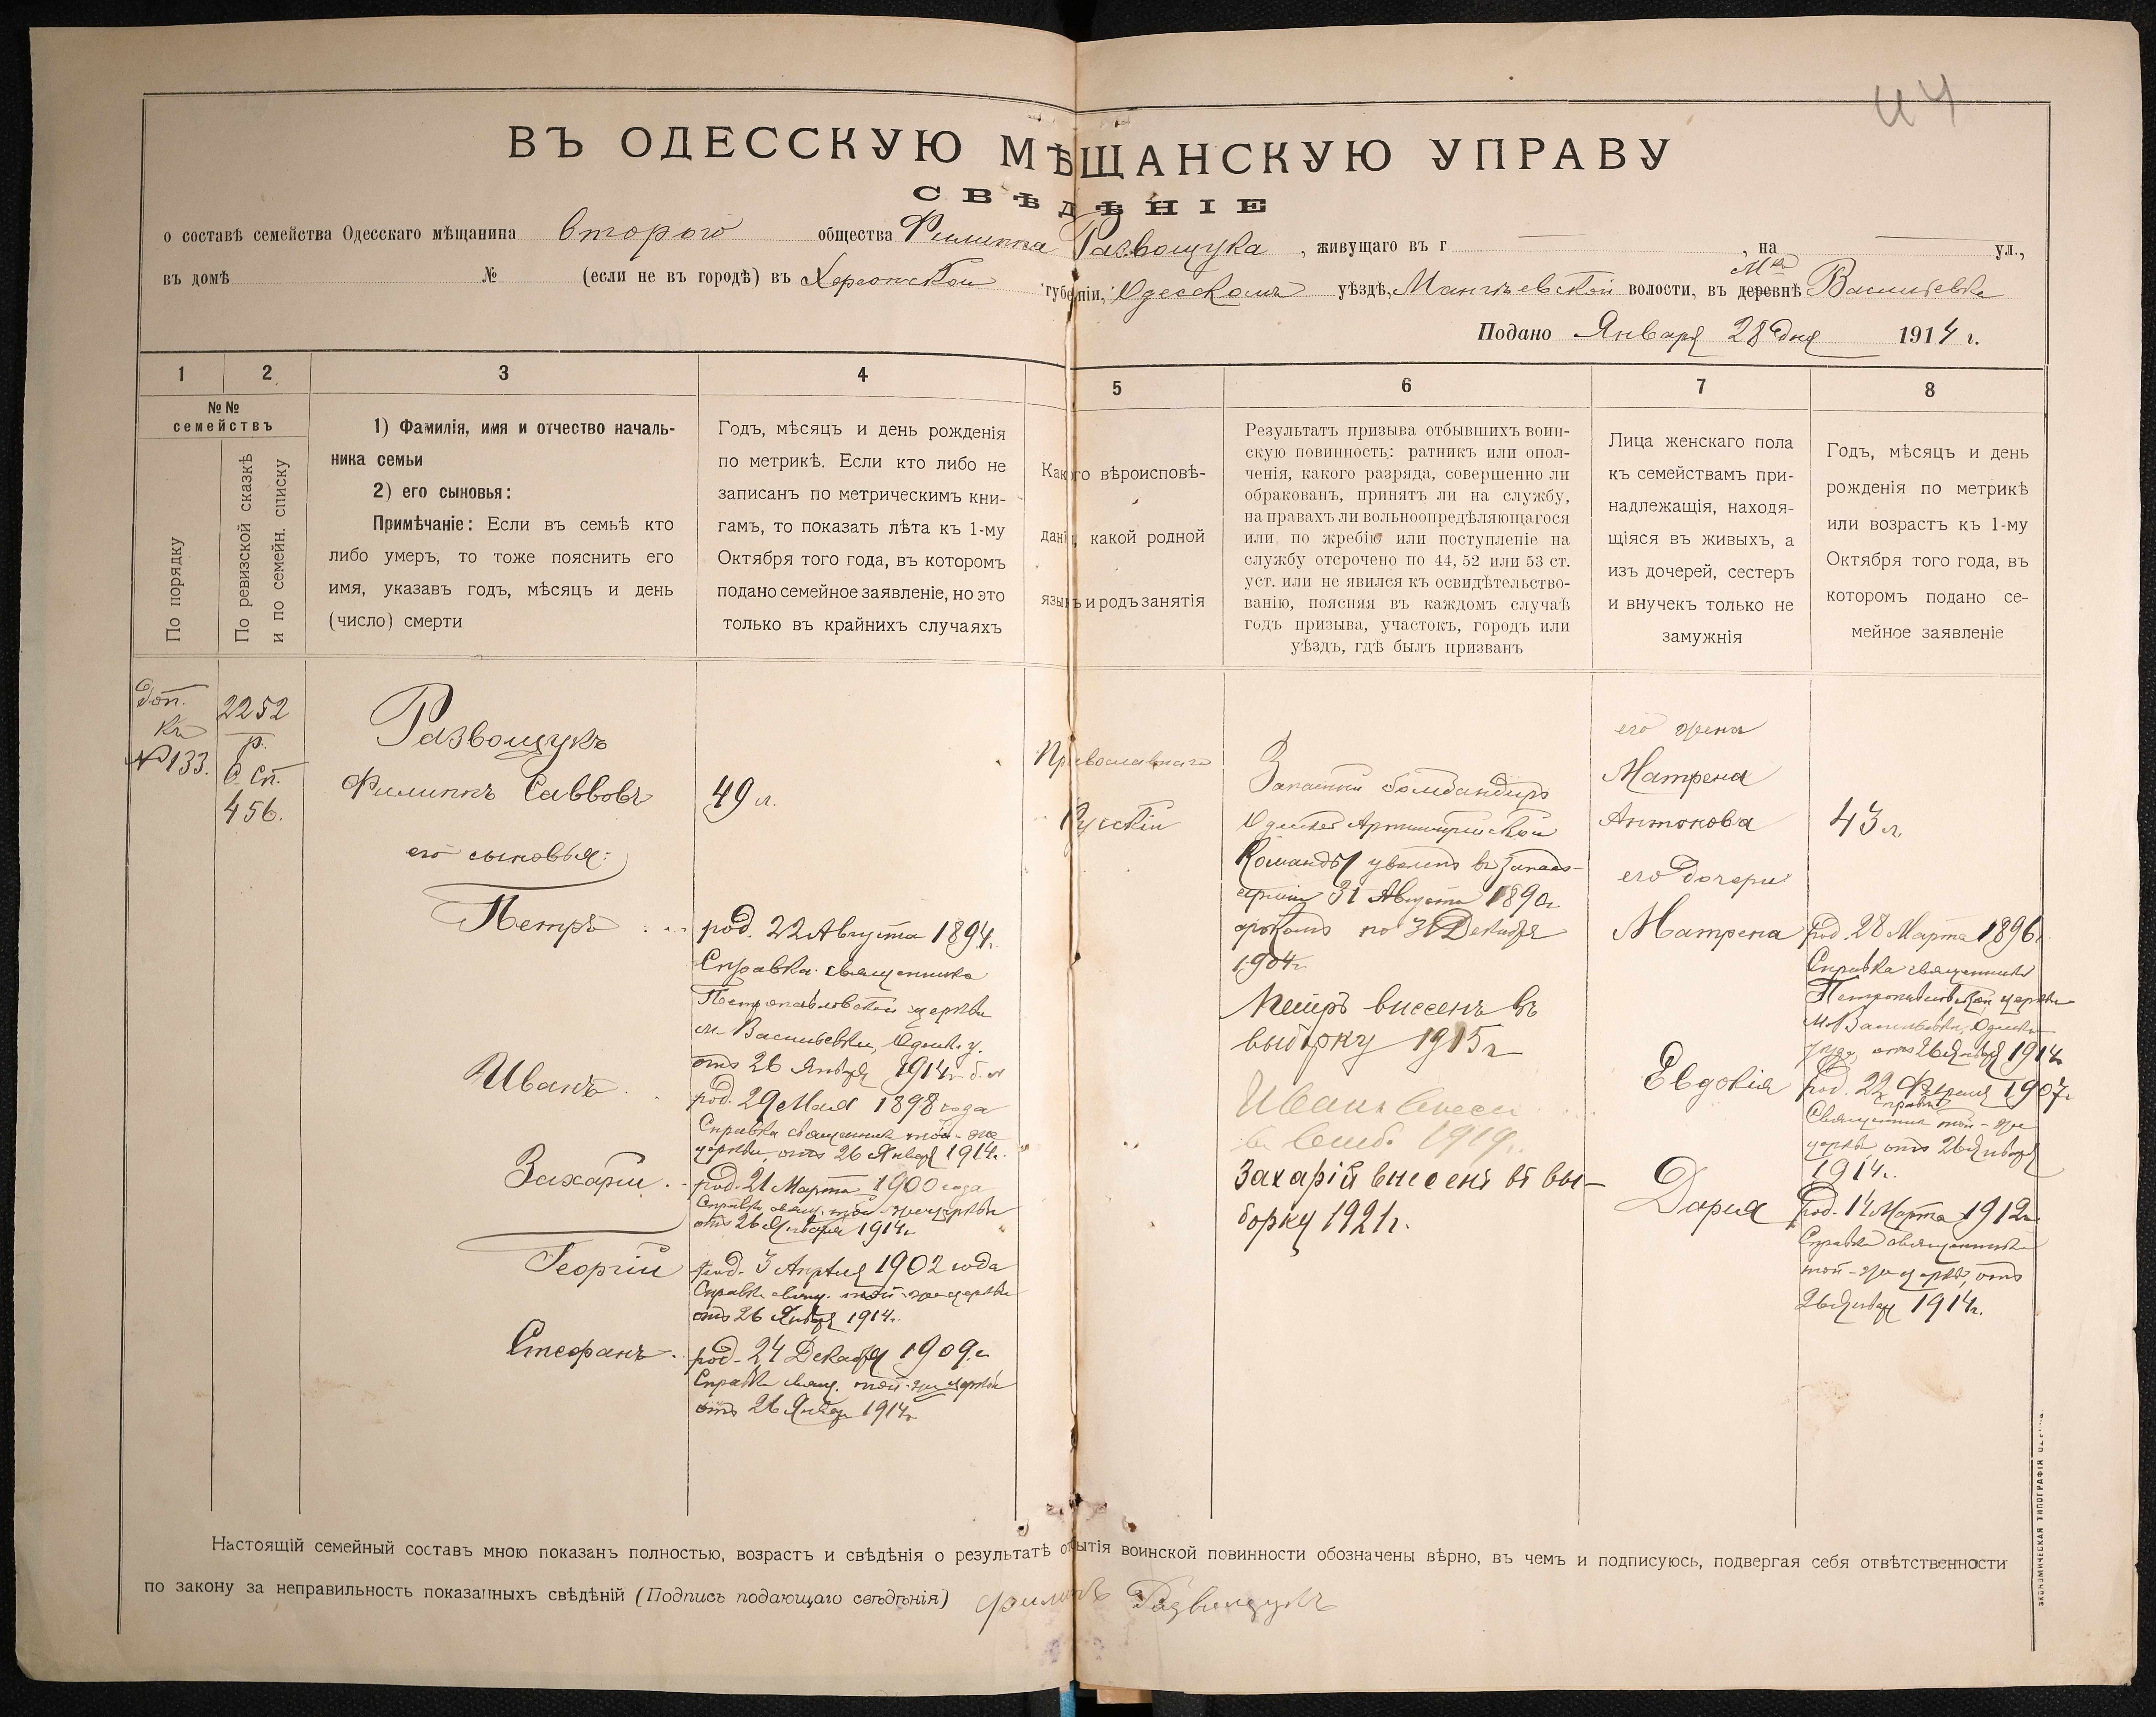 44
ВЪ ОДЕССКУЮ МѢЩАНСКУЮ УПРАВУ
СВѢДѢНІЕ
о составѣ семейства Одесскаго мѣщанина второго общества Филиппа Развощука, живущаго въ г — , на — ул.,
въ домѣ № (если не въ городѣ) въ Херсонской губерніи, Одесскомъ уѣздѣ, волости, въ деревнѣ Васильевка
Подано Января 28 дня 1914 г.
1 2 3 4 5 6 7 8
№№
семействъ
По порядку
По ревизской сказкѣ
и по семейн. списку
1) Фамилія, имя и отчество началь-
ника семьи
2) его сыновья:
Примѣчаніе: Если въ семьѣ кто
либо умеръ, то тоже пояснить его
имя, указавъ годъ, мѣсяцъ и день
(число) смерти
Годъ, мѣсяцъ и день рожденія
по метрикѣ. Если кто либо не
записанъ по метрическимъ кни-
гамъ, то показать лѣта къ 1-му
Октября того года, въ которомъ
подано семейное заявленіе, но это
только въ крайнихъ случаяхъ
Какого вѣроисповѣ-
данія, какой родной
языкъ и родъ занятія
Результатъ призыва отбывшихъ воин-
скую повинность: ратникъ или опол-
ченія, какого разряда, совершенно ли
обракованъ, принятъ ли на службу,
на правахъ ли вольноопредѣляющагося
или по жребію или поступленіе на
службу отсрочено по 44, 52 или 53 ст.
уст. или не явился къ освидѣтельство-
ванію, поясняя въ каждомъ случаѣ
годъ призыва, участокъ, городъ или
уѣздъ, гдѣ былъ призванъ
Лица женскаго пола
къ семействамъ при-
надлежащія, находя-
щіяся въ живыхъ, а
изъ дочерей, сестеръ
и внучекъ только не
замужнія
Годъ, мѣсяцъ и день
рожденія по метрикѣ
или возрастъ къ 1-му
Октября того года, въ
которомъ подано се-
мейное заявленіе
Доп.
кн
№133.
2252
р.
С. Сп.
456.
Развощукъ
Филиппъ Саввовъ
его сыновья:
Петръ
Иванъ
Захарій
Георгій
Стефанъ
49 л.
род. 22 Августа 1894г.
Справка священника
Петропавловской церкви
м. Васильевки, Одесск. у.
отъ 26 Января 1914г.
род. 29 Мая 1898 года
Справка священника той-же
церкви, отъ 26 Января 1914г.
род. 21 Марта 1900 года
Справка свящ. той-же церкви
отъ 26 Января 1914г.
род. 3 Апрѣля 1902 года
Справка свящ. той-же церкви
отъ 26 Января 1914г.
род. 24 Декабря 1909г.
Справка свящ. той-же церкви
отъ 26 Января 1914г.
Православнаго
Русскій
Запасный бомбандиръ
Одесской Артиллерійской
Команды уволенъ въ запасъ
арміи 31 Августа 1890г.
срокомъ по 31 Декабря
1904г.
Петръ внесенъ въ
выборку 1915г
Иванъ внесен
1919г.
Захарій внесенъ въ вы-
борку 1921г.
его жена
Матрена
Антонова
его дочери
Матрена
Евдокія
Дарія
43 л.
род. 28 Марта 1896г.
Справка священника
Петропавловской церкви
м. Васильевки, Одесск.
уѣзда, отъ 26 Января 1914г.
род. 22 Февраля 1907г.
Справка
Священника той-же
церкви, отъ 26 Января
1914г.
род. 14 Марта 1912г.
Справка священника
той-же церкви, отъ
26 Января 1914г.
Настоящій семейный составъ мною показанъ полностью, возрастъ и свѣдѣнія о результатѣ отбытія воинской повинности обозначены вѣрно, въ чемъ и подписуюсь, подвергая себя отвѣтственности
по закону за неправильность показанныхъ свѣдѣній (Подпись подающаго свѣдѣнія) Филипъ Развощукъ
ЭКОНОМИЧЕСКАЯ ТИПОГРАФІЯ